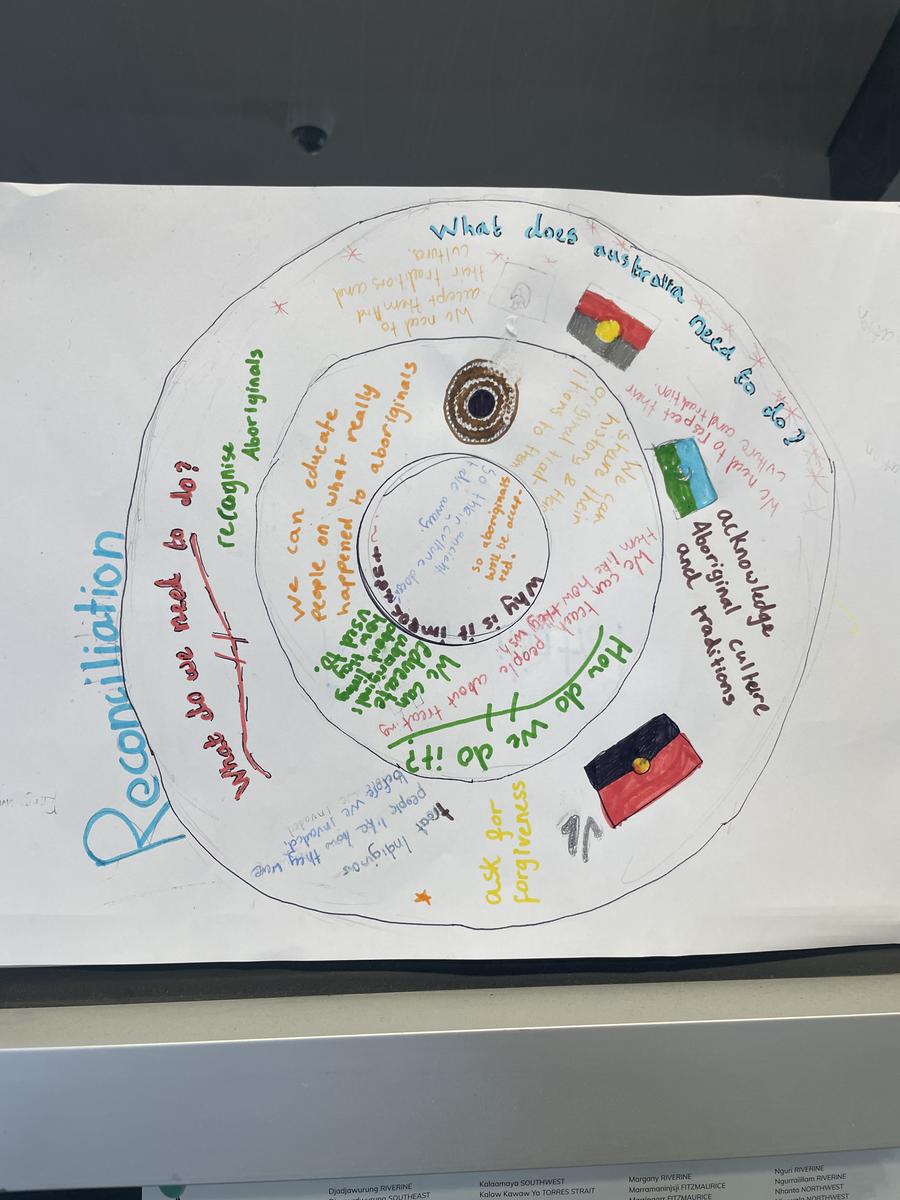 Reconciliation
What does australia need to do?
We need to
accept them and
their traditions and
cultures.
We need to respect their
culture and tradition.
acknowledge
Aboriginal culture
and traditions
ask for
forgiveness
treat Indiginas
people like how they were
before we invaded.
What do we need to do?
recognise
Aboriginals
We can educate
people on what really
happened to aboriginals
We can
share their
history &
to them
We can teach people about treating
them like how they wish.
How do we do it?
We can
educate
Why is it
so aboriginals
will be accep-
ted.
So their ancient
culture
Djadjawurung RIVERINE
SOUTHEAST
Kalaamaya SOUTHWEST
Kalaw Kawaw Ya TORRES STRAIT
Margany RIVERINE
Marramaninjsji FITZMAURICE
FITZMAURICE
Nguri RIVERINE
Ngurraiillam RIVERINE
Nhanta NORTHWEST
NORTHWEST